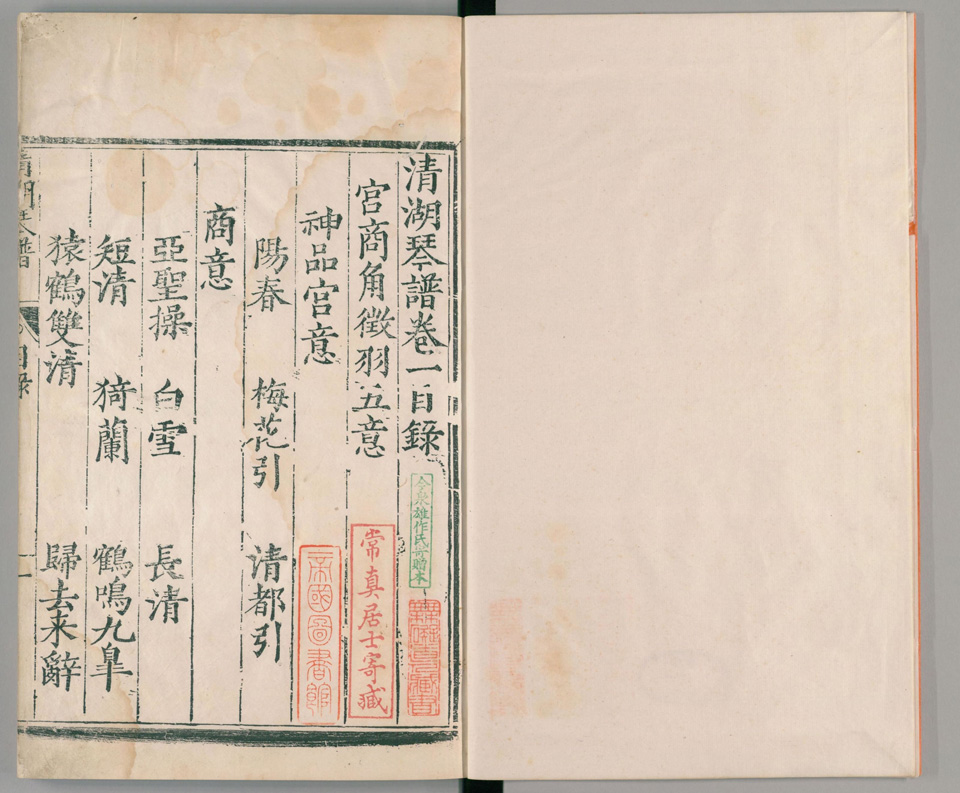 清湖琴譜卷一目錄
宮商角徵羽五意
神品宮意
陽春 梅花引 清都引
商意
亞聖操 白雪 長清
短清 猗蘭 鶴鳴九皐
猿鶴雙清 歸去来辭
清湖琴譜 目錄 一
今泉雄作氏寄贈本
常真居士寄藏
帝國圖書館